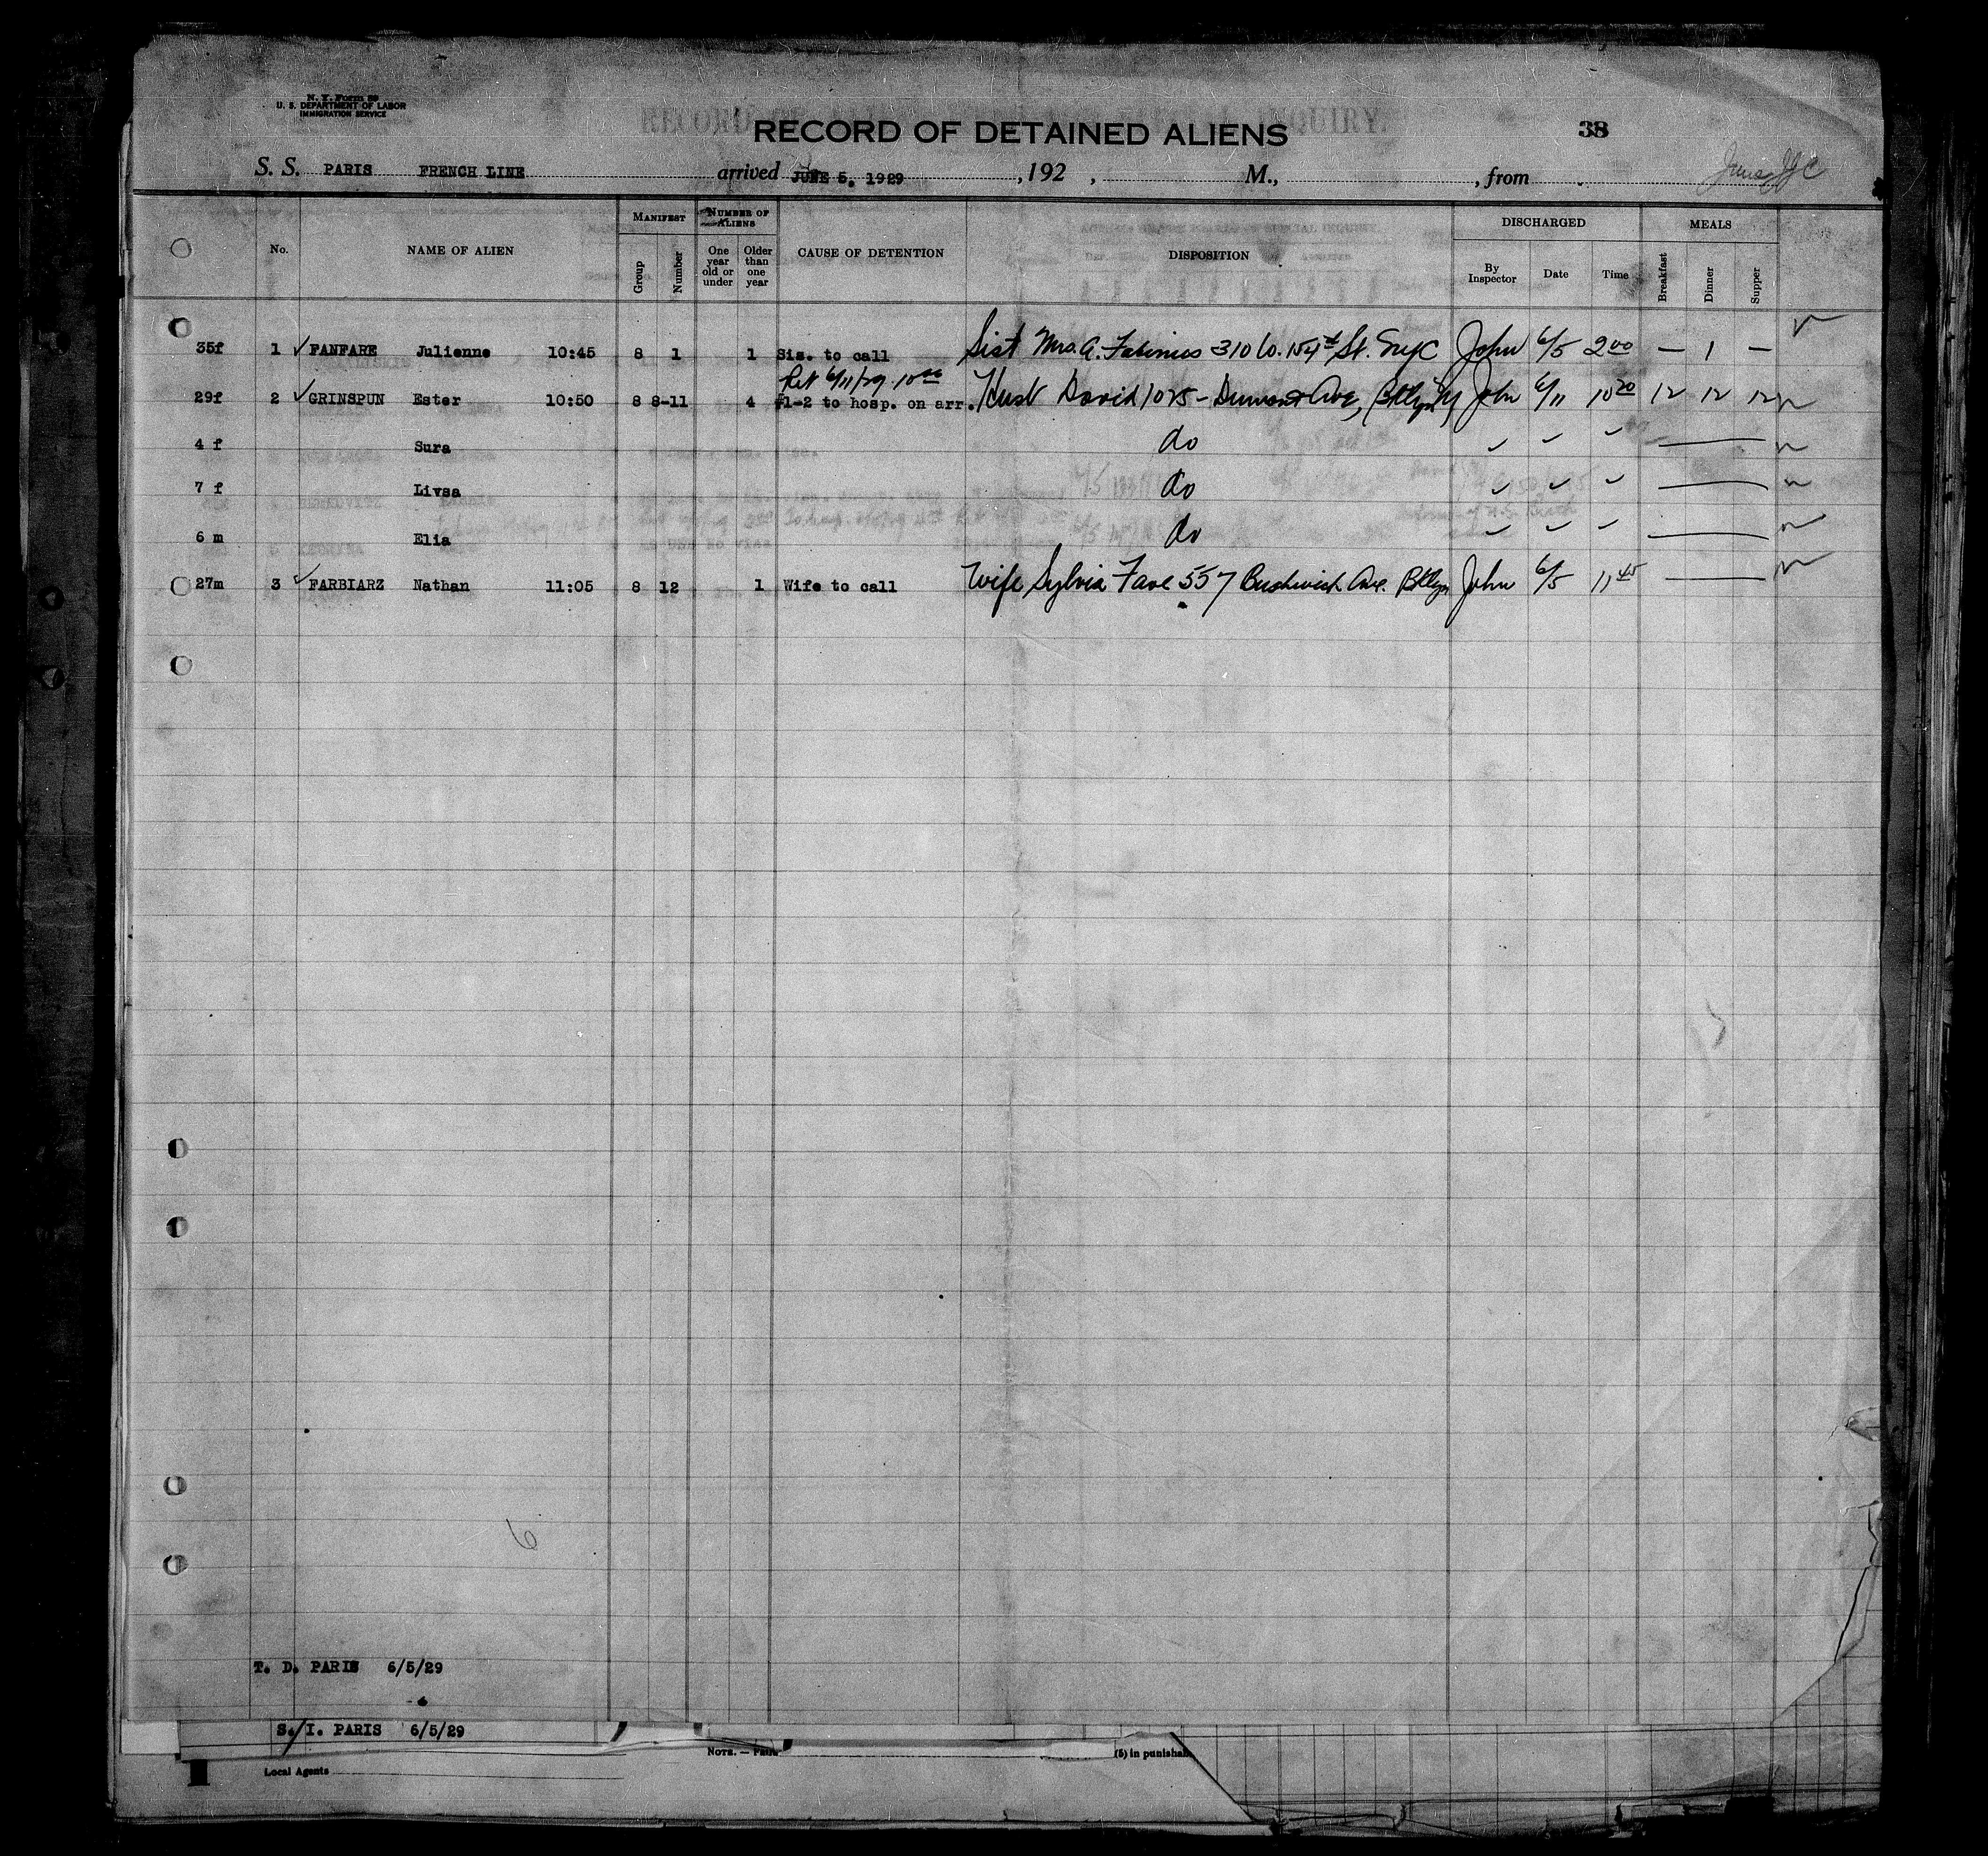 N. Y. Form 89
U. S. DEPARTMENT OF LABOR
IMMIGRATION SERVICE
RECORD OF DETAINED ALIENS
38
S. S. PARIS FRENCH LINE arrived JUNE 5, 1929 , 192 , M., , from
No. NAME OF ALIEN MANIFEST Group Number NUMBER OF ALIENS One year old or under Older than one year CAUSE OF DETENTION DISPOSITION DISCHARGED By Inspector Date Time MEALS Breakfast Dinner Supper
35f 1 ✓ FANFARE Julienne 10:45 8 1 1 Sis. to call Sist Mrs. A. 310 W. 154th St. NYC John 6/5 2 00 — 1 —
Ret 6/11/29 10 00
29f 2 ✓ GRINSPUN Ester 10:50 8 8-11 4 #1-2 to hosp. on arr. Husb David 1025 - Dumont Ave, Bklyn NY John 6/11 10 20 12 12 12
4 f Sura do ✓ ✓ ✓
7 f Livsa do ✓ ✓ ✓
6 m Elia do ✓ ✓ ✓
27m 3 ✓ FARBIARZ Nathan 11:05 8 12 1 Wife to call Wife Sylvia Fave 557 Bushwick Ave. Bklyn John 6/5 11 45
6
T. D. PARIS 6/5/29
S. I. PARIS 6/5/29
NOTE. —
(5) in punishab
Local Agents